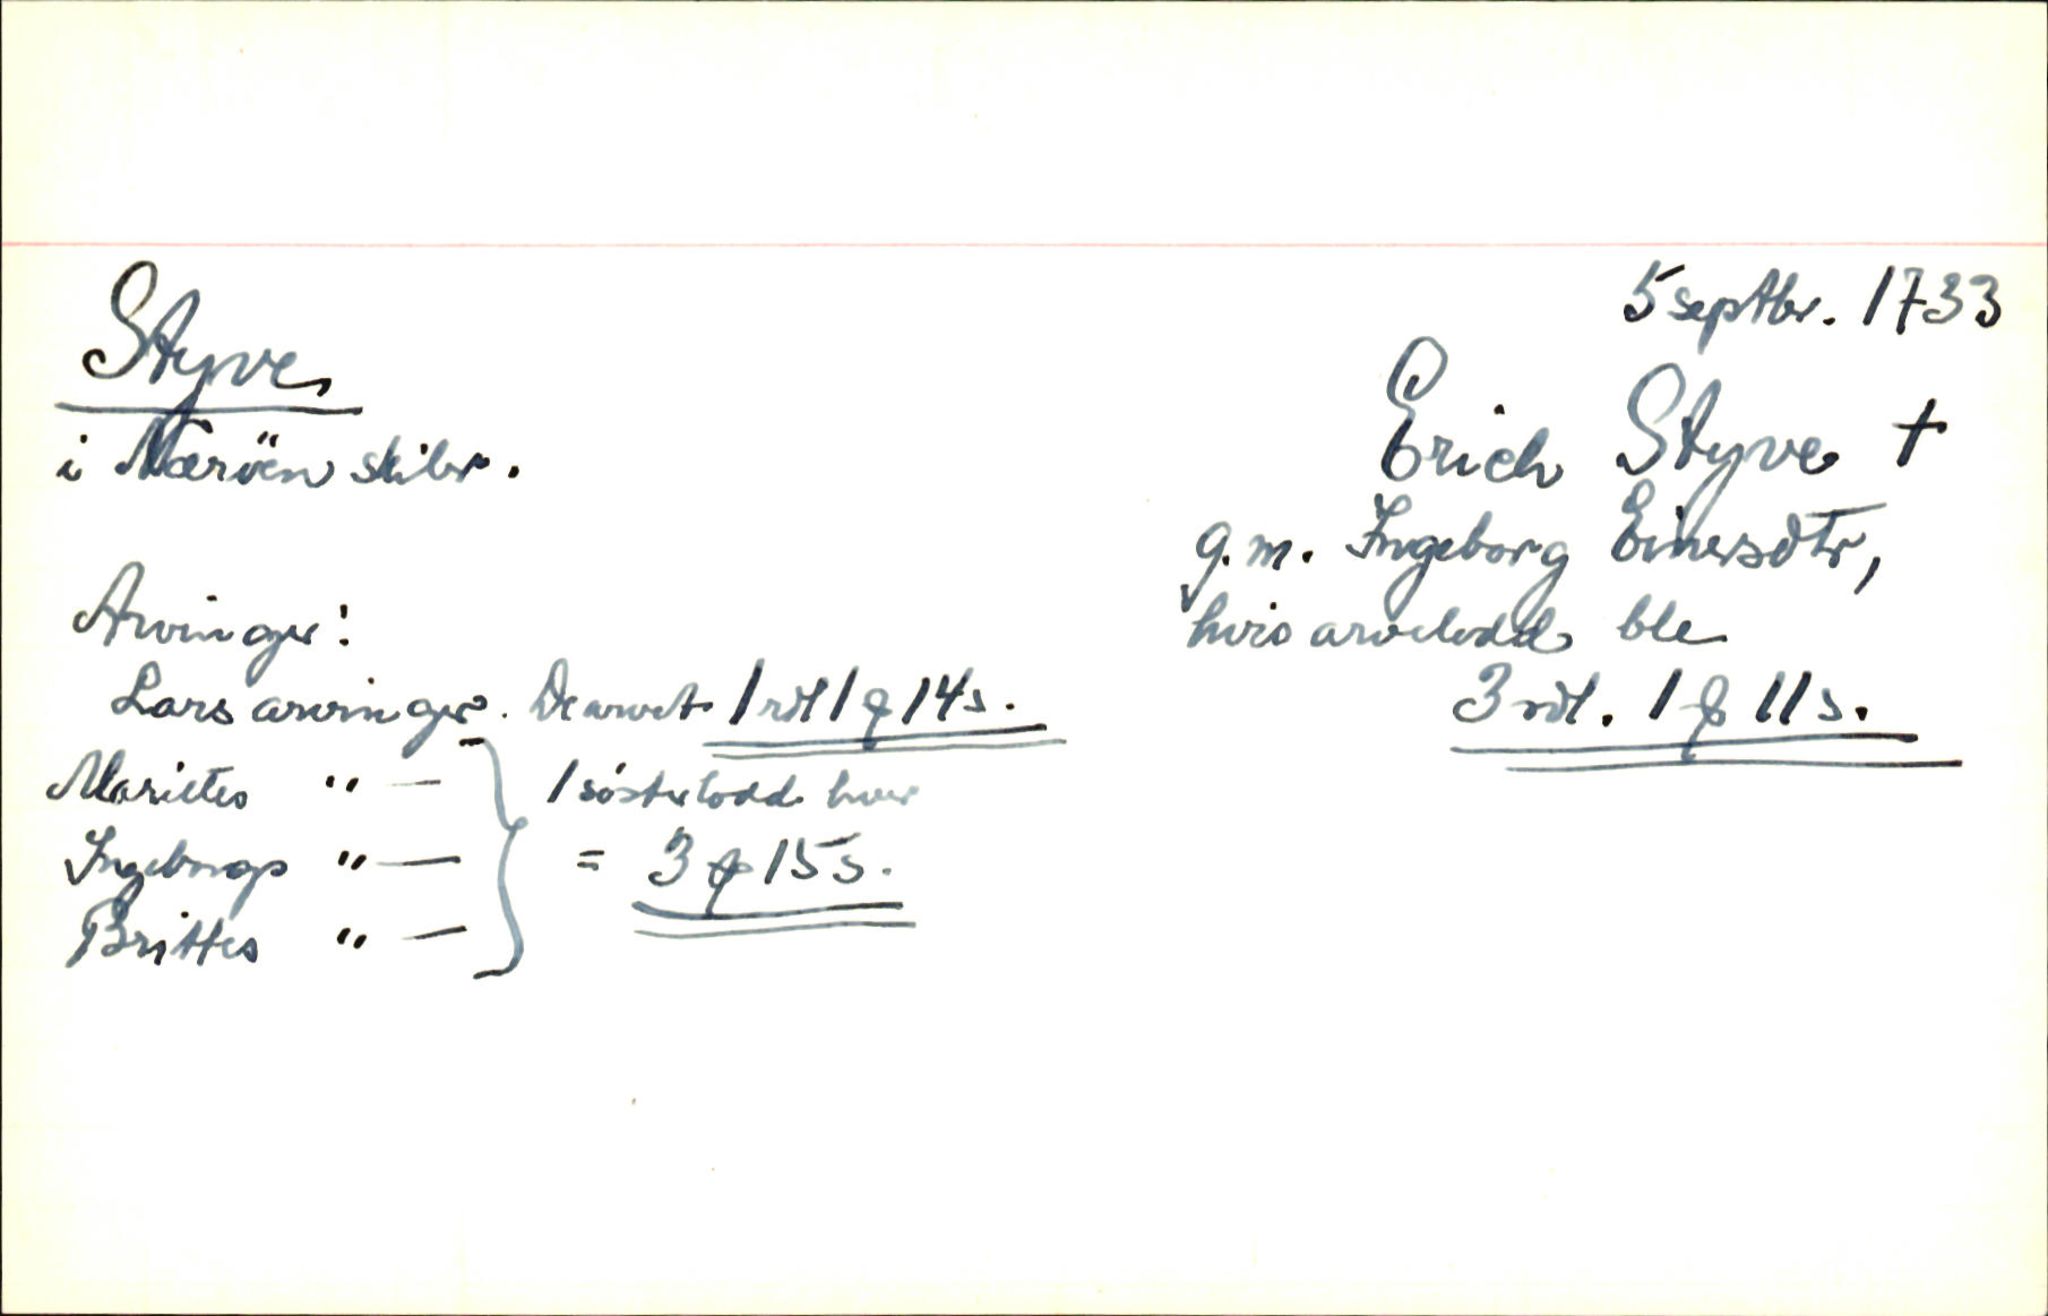 5 septbr. 1733
Styve
i Næröen skibr.
Erich Styve †
g.m. Ingeborg Einersdtr,
hvis arvelodd ble
3 rdl. 1 ʒ 11 s.
Arvinger:
Lars arvinger. De arvet 1 rdl 1 ʒ 14 s.
Marittes " —
Ingeborgs " —
Brittes " —
1 søsterlodd hver
= 3 ʒ 15 s.